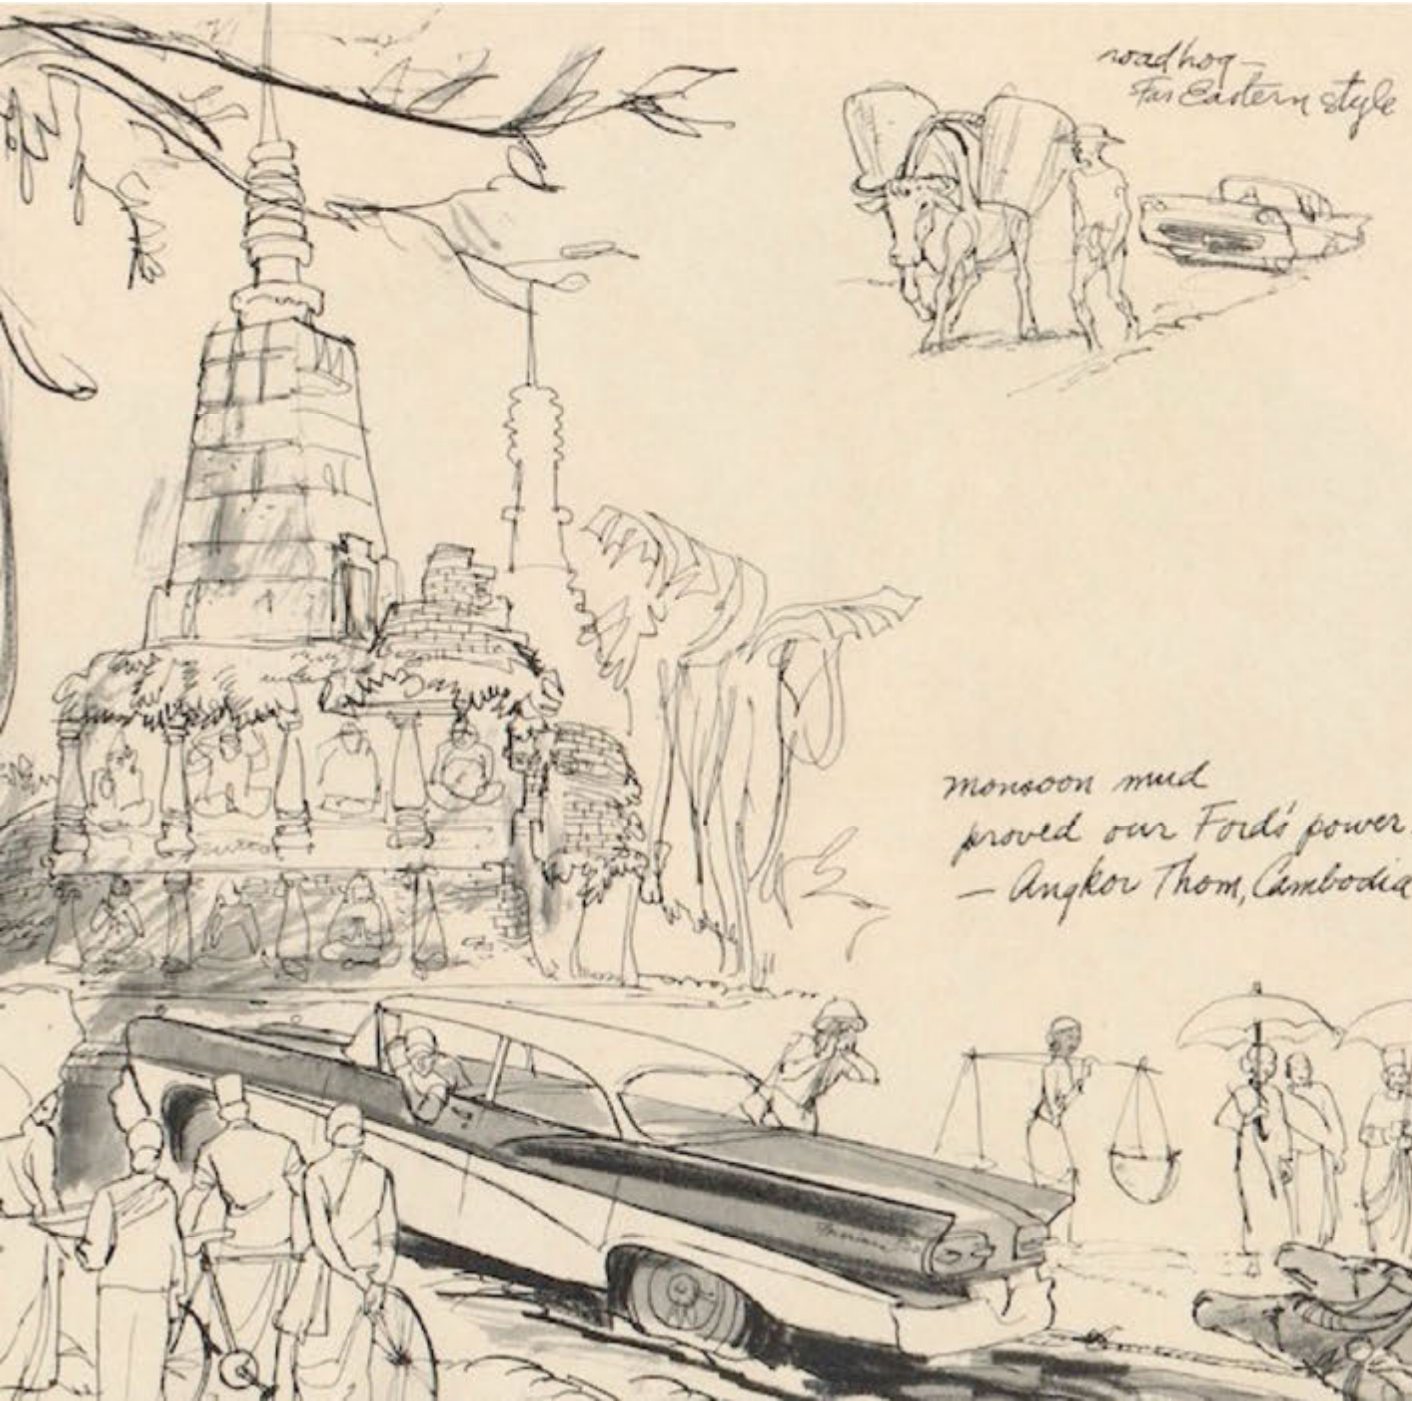 roadhog—
Far Eastern style
monsoon mud
proved our Ford's power
— Angkor Thom, Cambodia